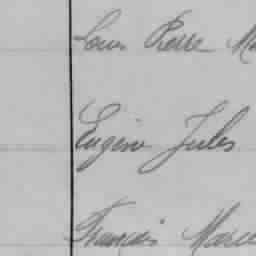 Louis Pierre Ma
Eugène Jules
François Marce